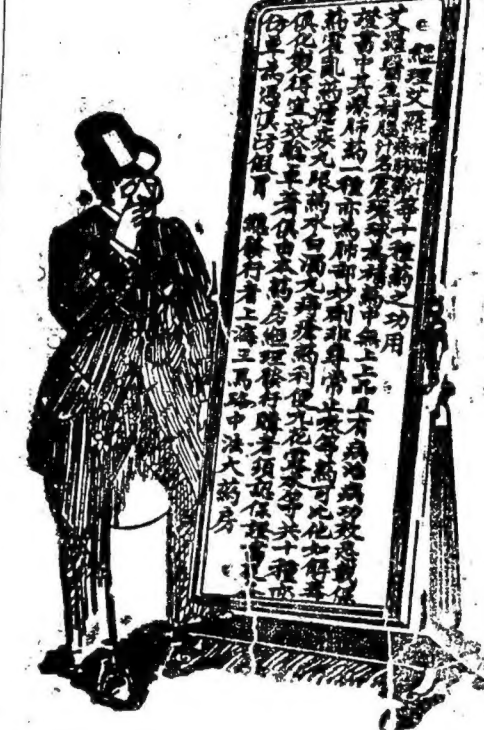 經理艾羅補腦汁療肺藥等十種藥之功用
艾羅醫生補腦汁名震環球為補藥中無上上品且有病治病功效悉載保
證書中其療肺藥一種亦為肺部妙劑非尋常止咳等藥可比他如解毒
藥霍亂藥瘧疾丸眼藥水白濁丸痔瘡藥利便丸花露水等共十種
俱化驗得宜效驗卓著俱由本藥房總理發行購者須認保證書
仿單為憑慎防假冒 總發行者上海三馬路中法大药房